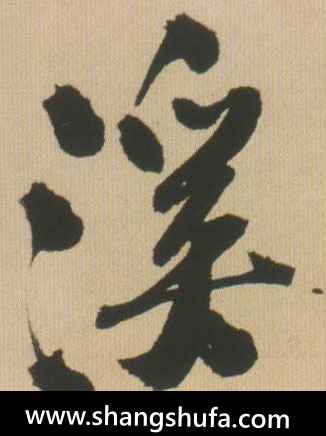 溪
www.shangshufa.com